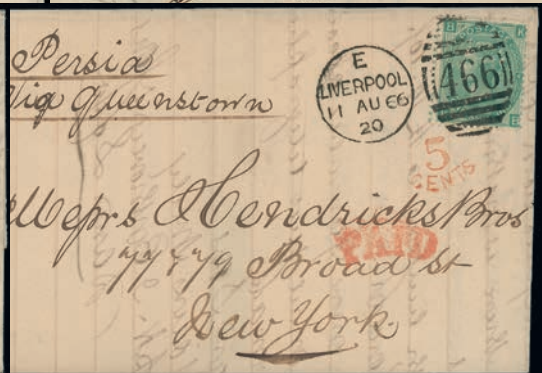 Persia
Via Queenstown
E
LIVERPOOL
11 AU 66
20
466
5
CENTS
Messrs Hendricks Bros
PAID
77 & 79 Broad St
New York.